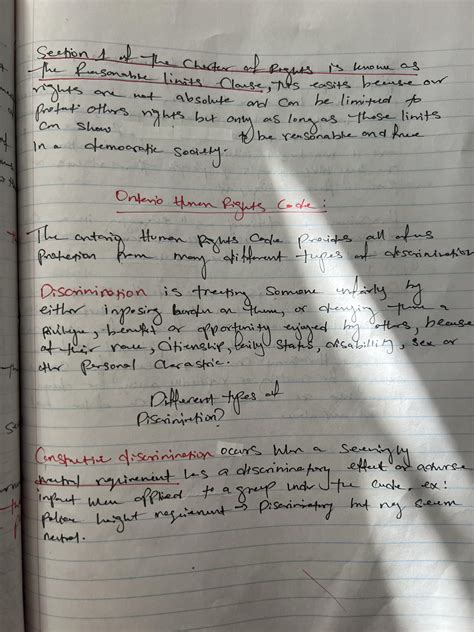 Section 1 of the Charter of Rights is known as
the Reasonable limits Clause, This exsits becuse our
rights are not absolute and can be limited to
protect others rights but only as long as those limits
Can show to be reasonable and free
in a democratic society.
Ontario Human Rights Code :
The ontario Human Rights Code Provides all of us
Protection from many different types of discrimination
Discrimination is treating Someone unfairly by
either imposing burden on them, or denying them a
privilege, benefit or opportunity enjoyed by others, becuse
of their race, Citizenship, family Status, disability, sex or
other Personal
Different types of
Discrimination?
Constructive discrimination occurs when a seemingly
neutral requirement has a discriminatory effect or adverse
impact when applied to a group under the code. ex:
police height requirement → Discriminatory but may seem
neutral.